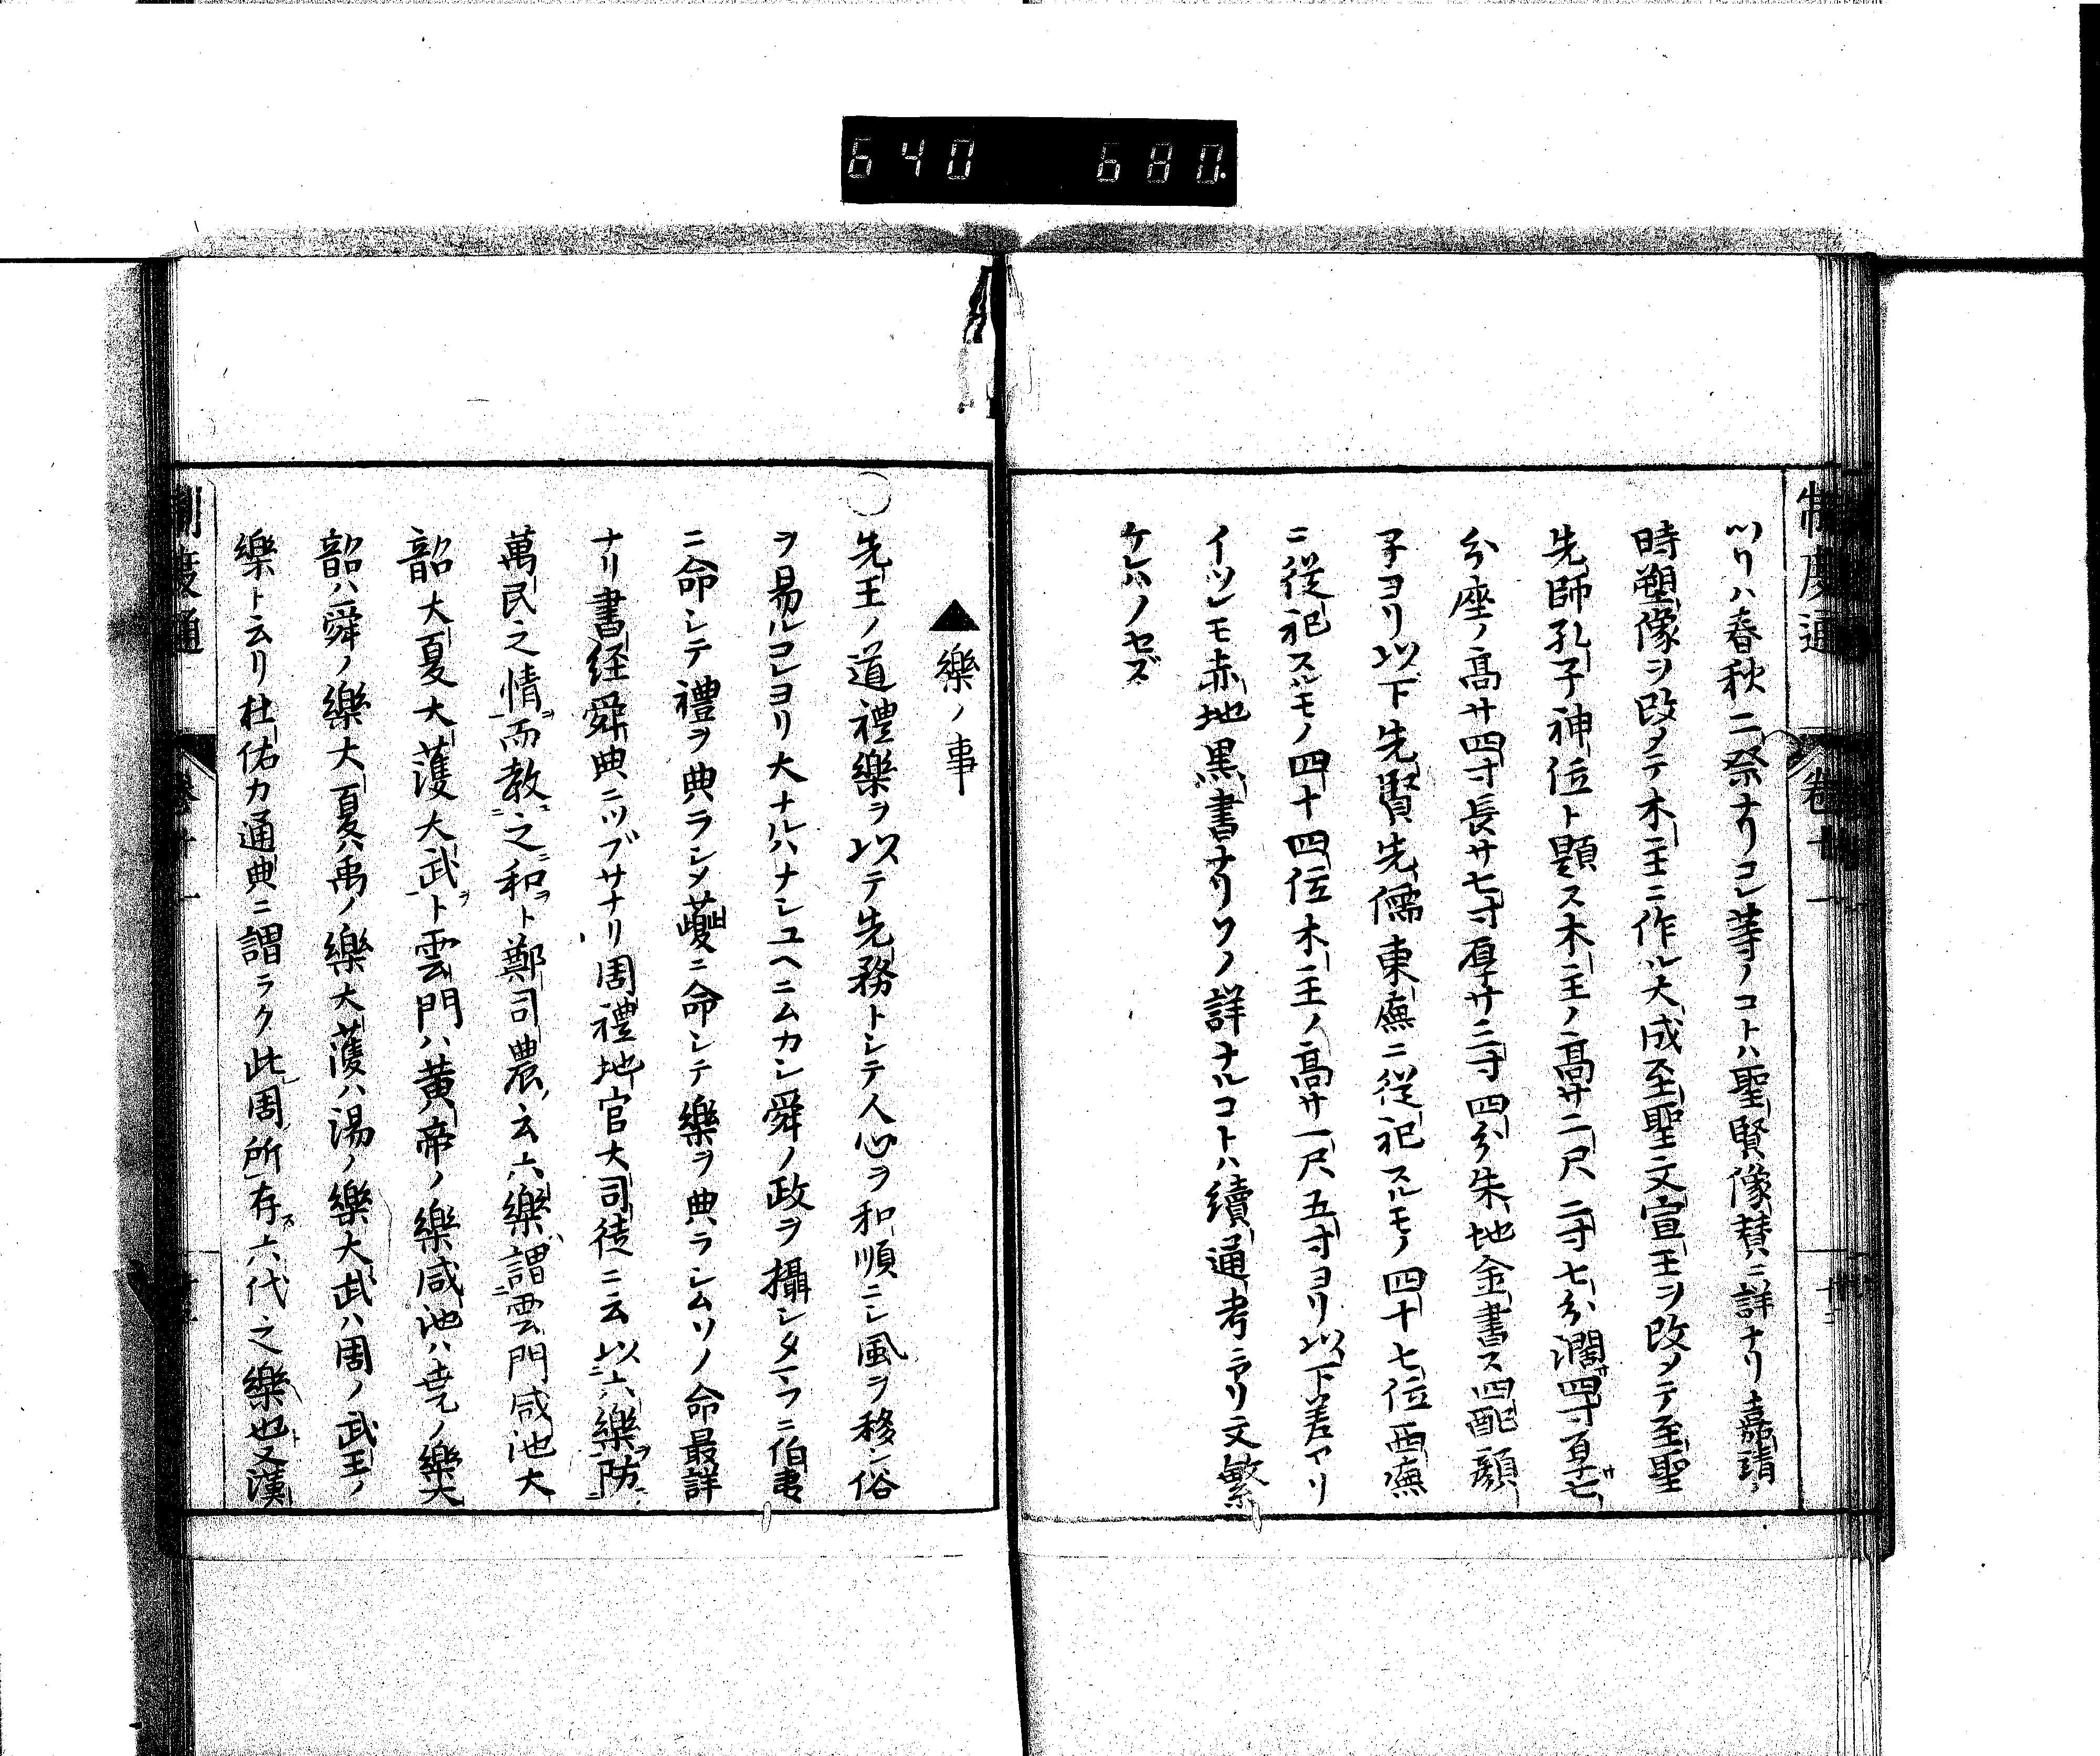 640 680.
制度通 卷十一
ツリハ春秋ニ祭ナリコレ等ノコトハ聖賢像賛ニ詳ナリ嘉靖ノ
時塑像ヲ改メテ木主ニ作ル大成至聖文宣王ヲ改メテ至聖
先師孔子神位ト題ス木主ノ高サ二尺三寸七分濶サ四寸厚サ七
分座ノ高サ四寸長サ七寸厚サ三寸四分朱地金書ス四配顔
子ヨリ以下先賢先儒東廡ニ從祀スルモノ四十七位西廡
ニ從祀スルモノ四十四位木主ノ高サ一尺五寸ヨリ以下差アリ
イヅレモ赤地黒書ナリソノ詳ナルコトハ續通考ニアリ文繁
ケレハノセズ
▲樂ノ事
○先王ノ道禮樂ヲ以テ先務トシテ人心ヲ和順ニシ風ヲ移シ俗
ヲ易ルコレヨリ大ナルハナシユヘニムカシ舜ノ政ヲ攝シタマフニ伯夷
ニ命シテ禮ヲ典ラシメ夔ニ命シテ樂ヲ典ラシムソノ命最詳
ナリ書経舜典ニツブサナリ周禮地官大司徒ニ云以六樂ヲ防
萬民之情ヲ而教之和ヲト鄭司農云六樂ハ謂雲門咸池大
韶大夏大頀大武ヲト雲門ハ黄帝ノ樂咸池ハ堯ノ樂大
韶ハ舜ノ樂大夏ハ禹ノ樂大頀ハ湯ノ樂大武ハ周ノ武王ノ
樂ト云リ杜佑カ通典ニ謂ラク此周所存ス六代之樂也ト又漢
制度通 卷十一